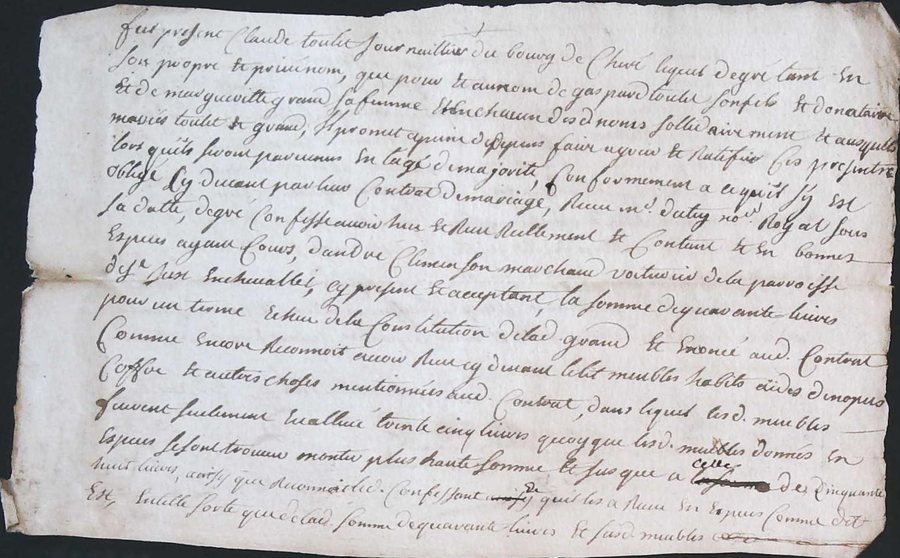 fut present Claude toulet journallier du bourg de Chiré lequel degré tant En
son propre et privé nom, que pour et au nom de gaspard toulet son fils et donataire
et de margueritte grand sa femme et En chacun desd noms sollidairement et ausquels
mariés toulet et grand, Il promet a peine de depens faire agreer et Ratiffier Ces presentes
lors quils seront parvenus En lage de majorité, Conformement a ce quil sy est
obligé Cy devant par leur Contrat de mariage, Receu me. notre Royal sous
sa datte, de gré Confesse avoir heu et Receu Reellement et Contant et En bonnes
Especes ayant Cours, d'andré Clemenson marchand voiturier de la parroisse
de st Just En chevallet, cy present et acceptant, la somme de quarante livres
pour un terme Echeu de la Constitution de lad. grand et Enoncé aud. Contrat
Comme Encore Reconnoit avoir Receu cy devant le lit meubles habits
Coffre et autres choses mentionnées aud. Contrat, dans lequel lesd. meubles
furent seulement Evallués trente cinq livres quoy que lesd. meubles donnés En
Especes se sont trouvés monter plus haute somme et jusque a celle de Cinquante
huit livres, ainsy que Reconnoit led. Confessant quil les a Receu En Especes Comme dit
Est, En telle sorte que de lad. somme de quarante livres et susd. meubles